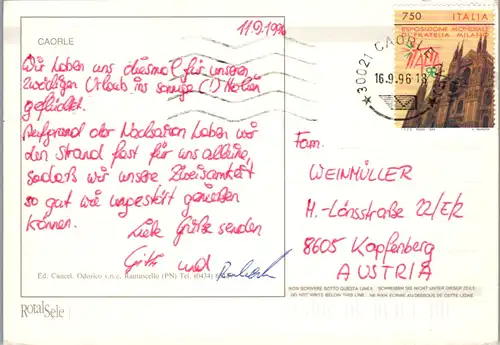 CAORLE
11.9.1996
Wir haben uns diesmal für unseren
zweitägigen Urlaub ins sonnige (!) Italien
geflüchtet.
Aufgrund der Nachsaison haben wir
den Strand fast für uns alleine,
sodaß wir unsere Zweisamkeit
so gut wie ungestört genießen
können.
Liebe Grüße senden
und
Ed. Cancel. Odorico s.n.c. Ramuscello (PN) Tel. (0434)
RotalSele
750 ITALIA
ESPOSIZIONE MONDIALE
DI FILATELIA MILANO
30021 CAORLE
16.9.96-18
Fam.
WEINMÜLLER
H.-Lönsstraße 22/E/2
8605 Kapfenberg
AUSTRIA
NON SCRIVERE SOTTO QUESTA LINEA SCHREIBEN SIE NICHT UNTER DIESER ZEILE
DO NOT WRITE BELOW THIS LINE NE PAS ECRIRE AU-DESSOUS DE CETTE LIGNE